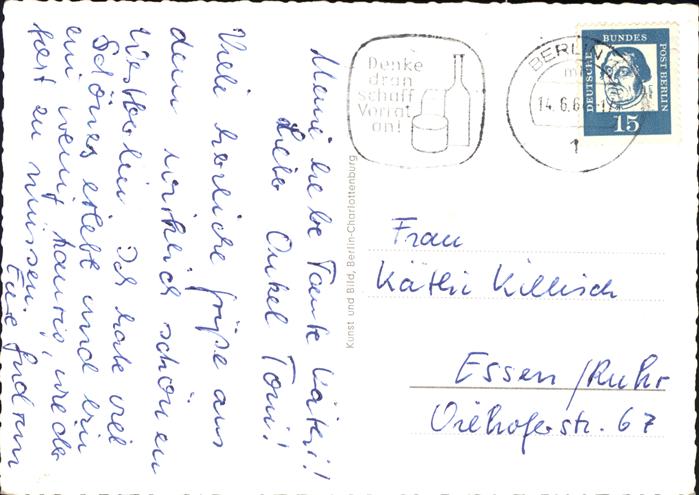 Meine liebe Tante Käthi!
Lieber Onkel Toni!
Viele herzliche Grüße aus
dem wirklich schönen
Westberlin. Ich habe viel
Schönes erlebt und bin
ein wenig traurig, wieder
fort zu müssen.
Eure
Kunst und Bild, Berlin-Charlottenburg
Denke
dran
schaff
Vorrat
an!
BERLIN
14.6.6
1
DEUTSCHE BUNDES POST BERLIN
15
Frau
Käthi Killisch
Essen/Ruhr
Vielhoferstr. 67